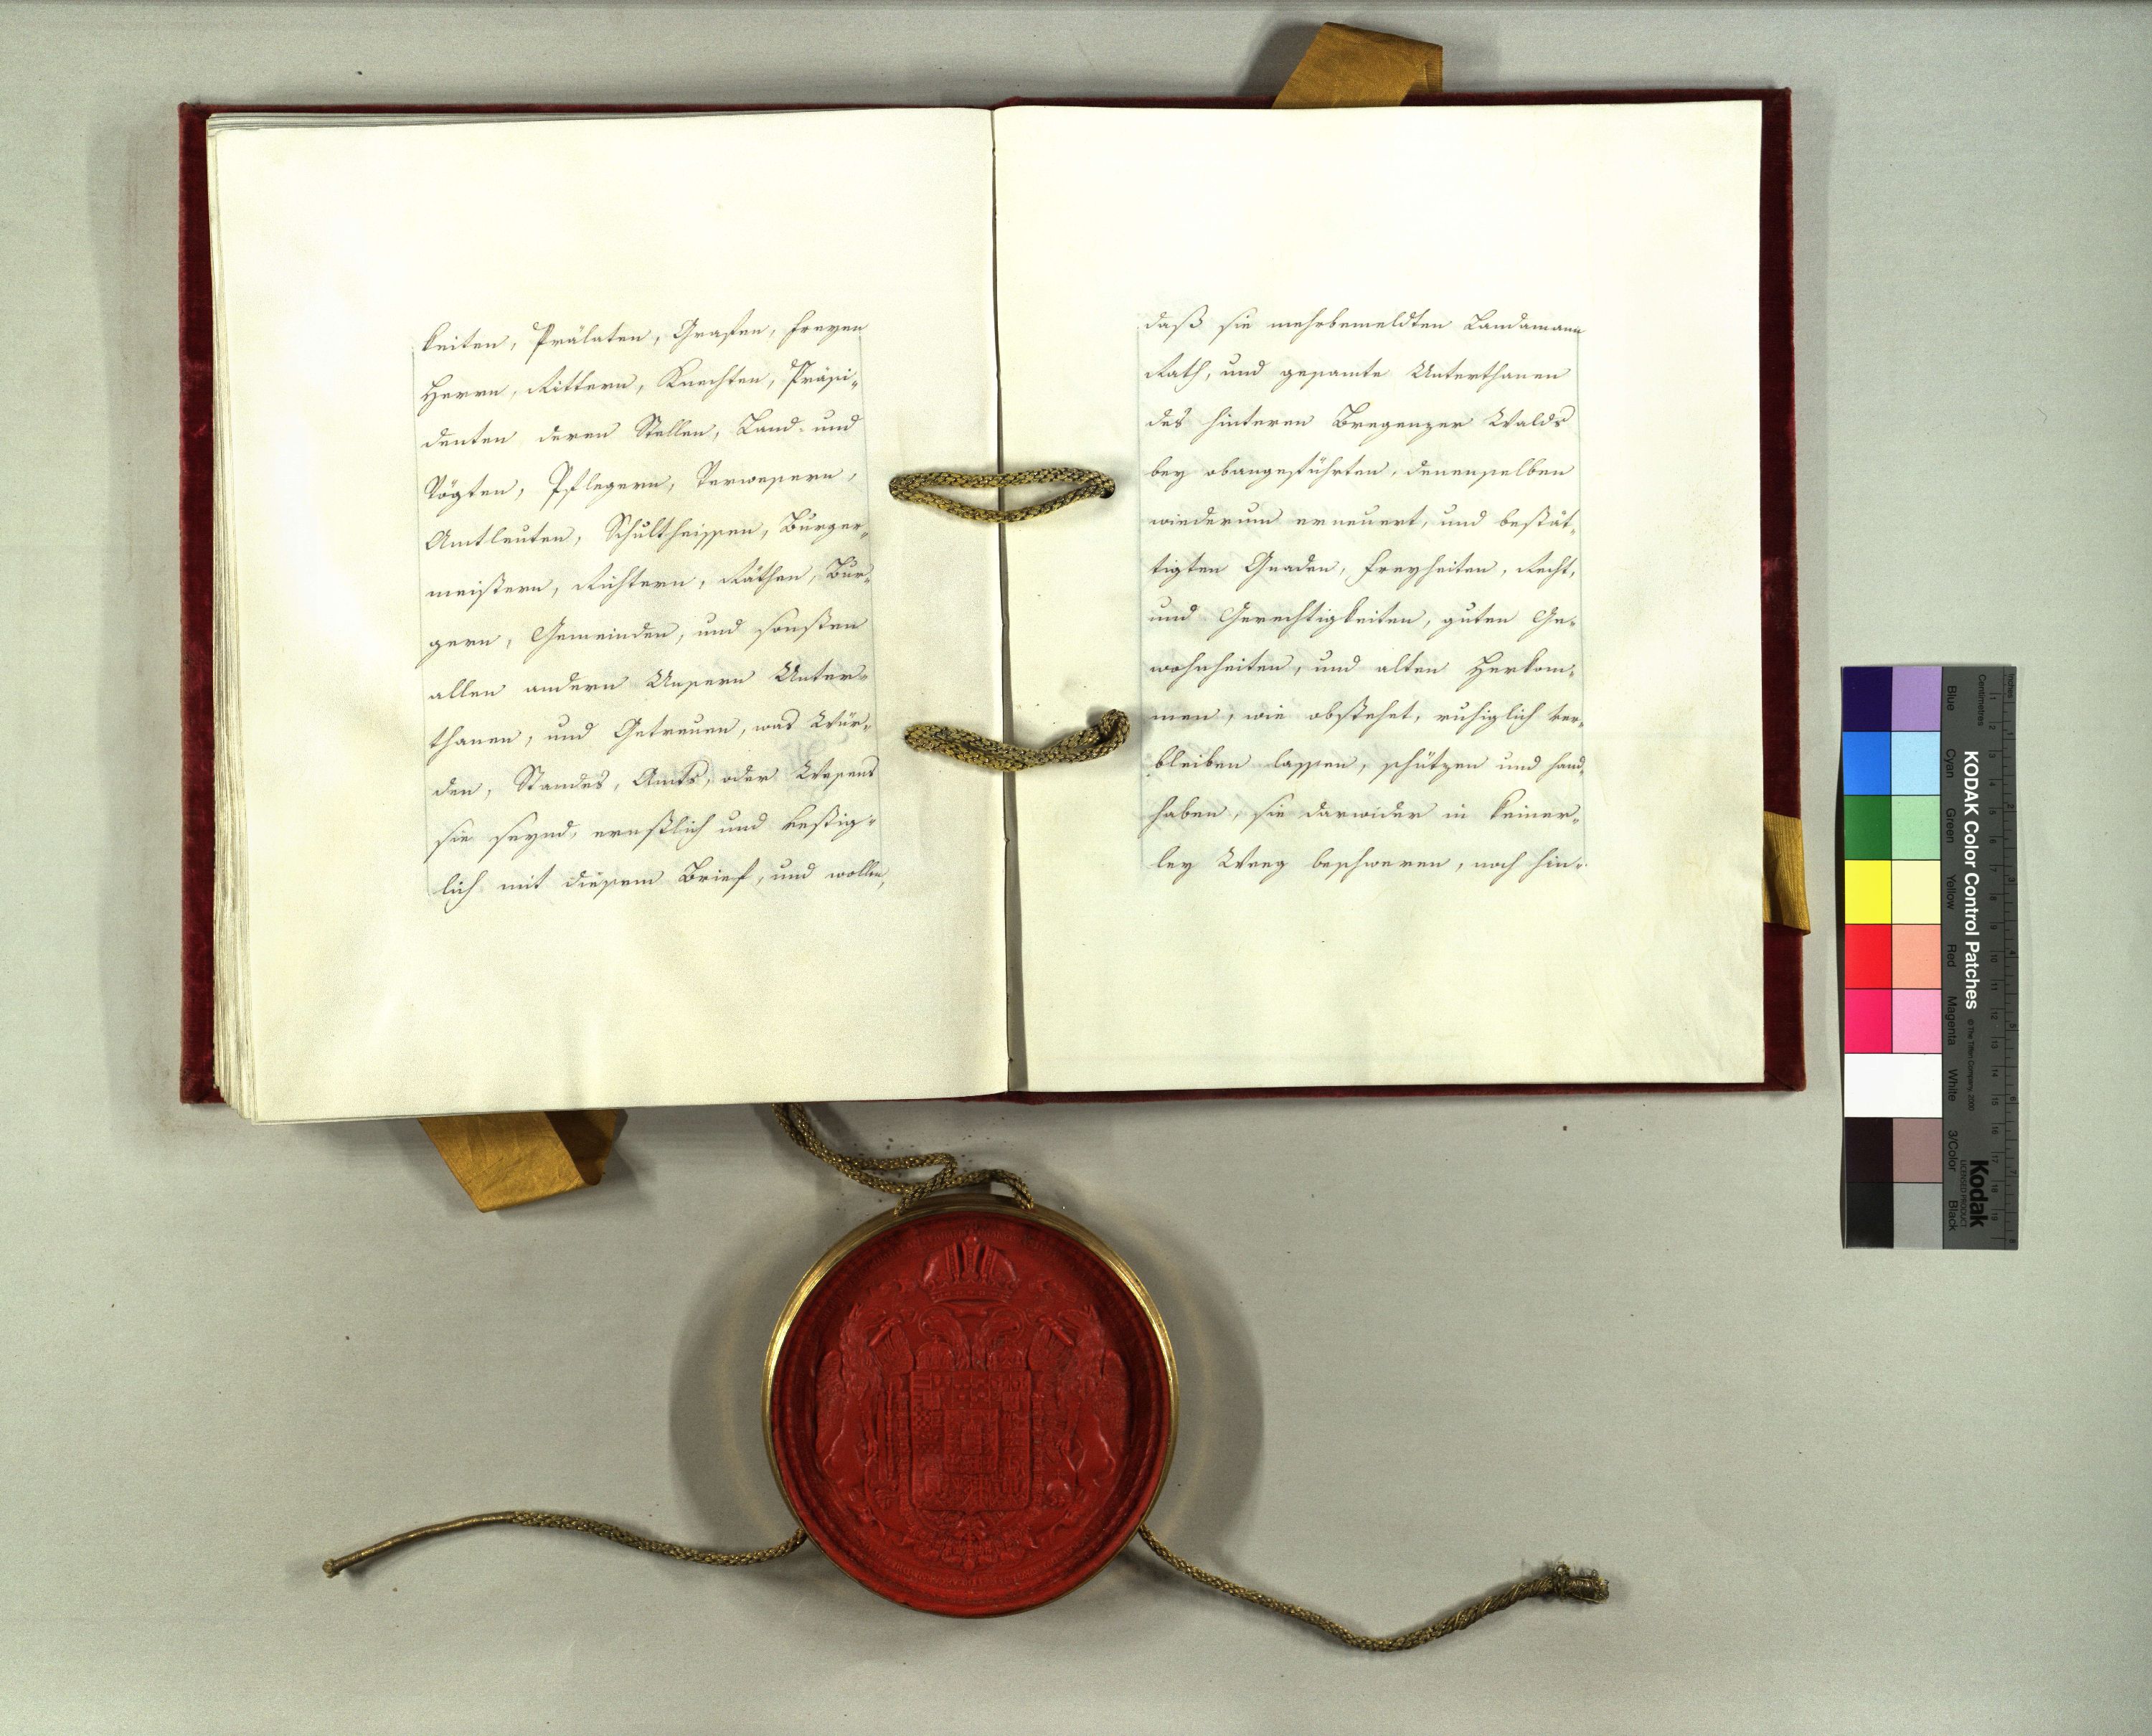 keiten, Prälaten, Grafen, Freyen
Herrn, Rittern, Knechten, Präsi-
denten deren Stellen, Land- und
Vögten, Pflegern, Verwesern,
Amtleuten, Schultheissen, Burger-
meistern, Richtern, Räthen, Bur-
gern, Gemeinden, und sonsten
allen andern Unsern Unter-
thanen, und Getreuen, was Wür-
den, Standes, Amts, oder Wesens
sie seynd, ernstlich und vestig-
lich mit diesem Brief, und wollen,
daß sie mehrbemeldten Landamann
Rath, und gesamte Unterthanen
des hinteren Bregenzer Walds
bey obangeführten, denenselben
wiederum erneuert, und bestät-
tigten Gnaden, Freyheiten, Recht,
und Gerechtigkeiten, guten Ge-
wohnheiten, und alten Herkom-
men, wie obstehet, ruhiglich ver-
bleiben lassen, schützen und hand-
haben, sie darwider in keiner-
ley Weeg beschweren, noch hin-
Inches
Centimetres
KODAK Color Control Patches
© The Tiffen Company, 2000
Kodak
LICENSED PRODUCT
Blue
Cyan
Green
Yellow
Red
Magenta
White
3/Color
Black